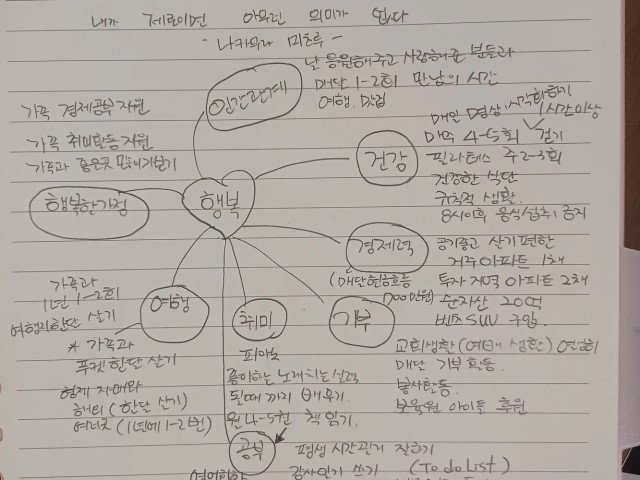 내가 제로이면 아무런 의미가 없다
- 나카무라 미츠루 -
행복
인간관계
날 응원해주고 사랑해준 분들과
매달 1-2회 만남의 시간
여행.
건강
매일 명상, 시각화하기
1시간이상
매주 4-5회 걷기
필라테스 주2-3회
건강한 식단
규칙적 생활.
8시이후 음식섭취 금지
경제력
공기좋고 살기편한
거주아파트 1채
투자 지역 아파트 2채
순자산 20억
벤츠SUV 구입.
(매달현금흐름
700만원)
기부
교회생활(예배 생활)
매달 기부 활동.
봉사활동.
보육원 아이들 후원
취미
피아노
좋아하는 노래치는실력
될때까지 배우기.
월4-5권 책읽기.
공부
평생 시간관리 잘하기
감사일기 쓰기 (To do List)
여행
가족과
1년 1-2회
여행지한달 살기
* 가족과
푸켓 한달살기
형제 자매와
하와이 (한달 살기)
(1년에 1-2번)
행복한가정
가족 경제공부 지원
가족 취미활동 지원
가족과 좋은곳